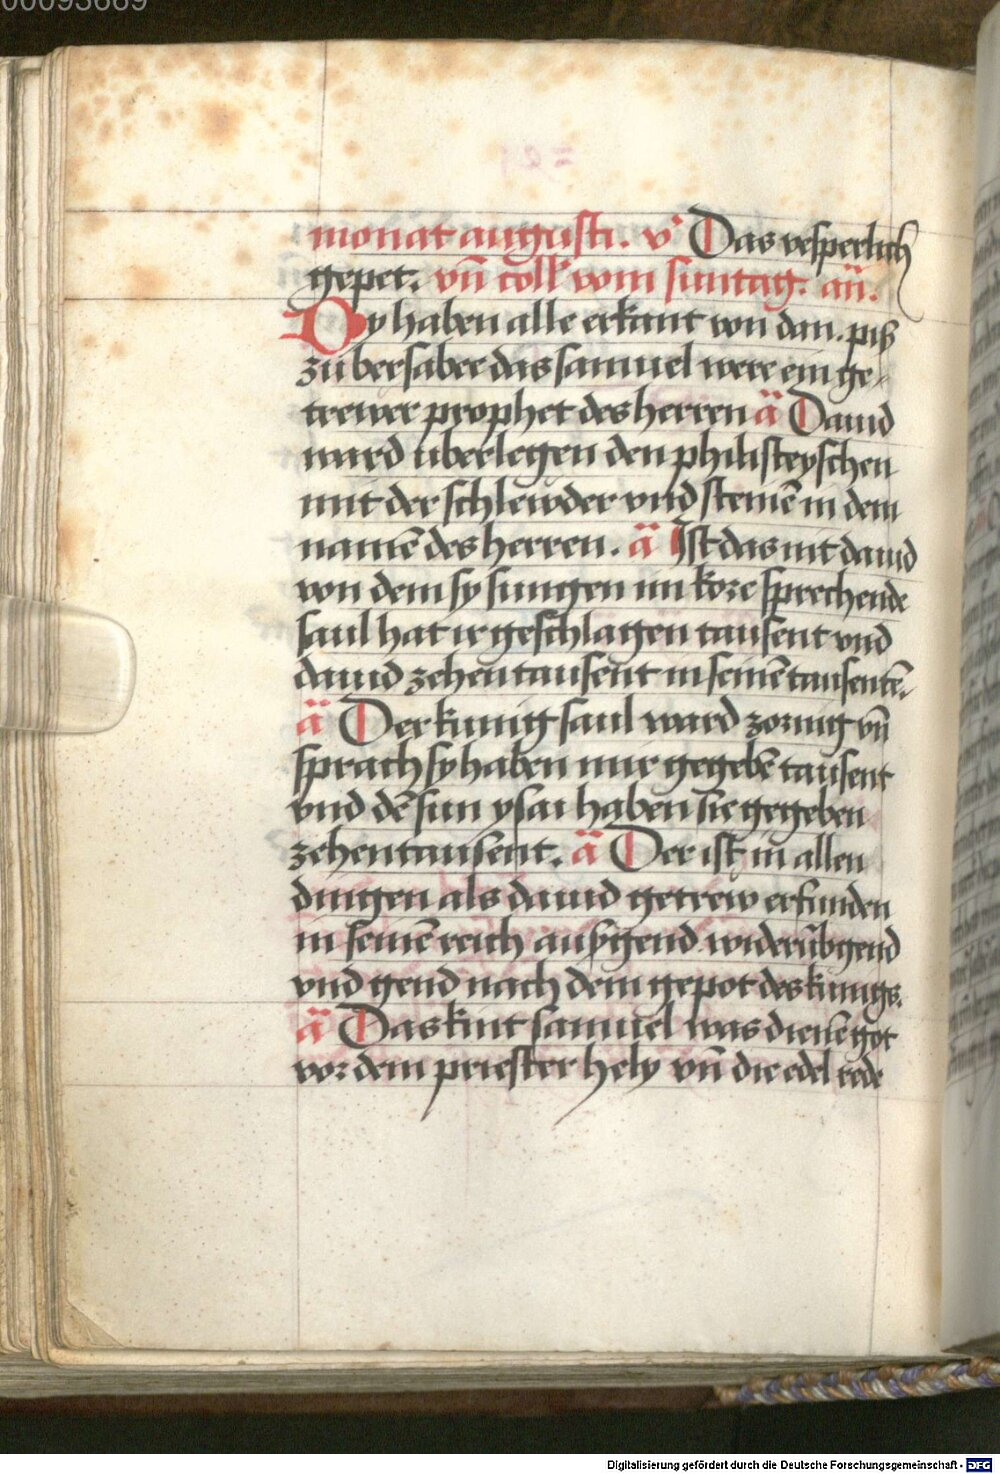 00093669
monat augusti. v̉ Das vesperlich
gepet. vn̄ coll' vom suntag. an̄.
Dy haben alle erkant von dan. piß
zu bersabee das samuel were ein ge-
trewer prophet des herren ā Dauid
ward uberlegen den philisteyschen
mit der schlewder vnd steinē in dem
namē des herren. ā Ist das nit dauid
von dem sy sungen im kore sprechende
saul hat ir geschlagen tausent vnd
dauid zehentausent in seinē tausentē.
ā Der kunig saul ward zornig vn̄
sprach sy haben mir gegebē tausent
vnd dē sun ysai haben sie gegeben
zehentausent. ā Der ist in allen
dingen als dauid getrew erfunden
in seinē reich außgend widerubgend
vnd gend nach dem gepot des kunigs.
ā Das kint samuel was dienē got
vor dem priester hely vn̄ die edel rede
Digitalisierung gefördert durch die Deutsche Forschungsgemeinschaft - DFG